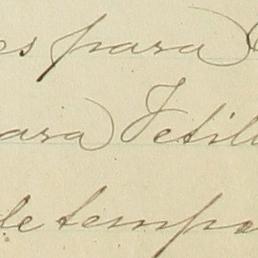 es para
para Vetil
de tempo